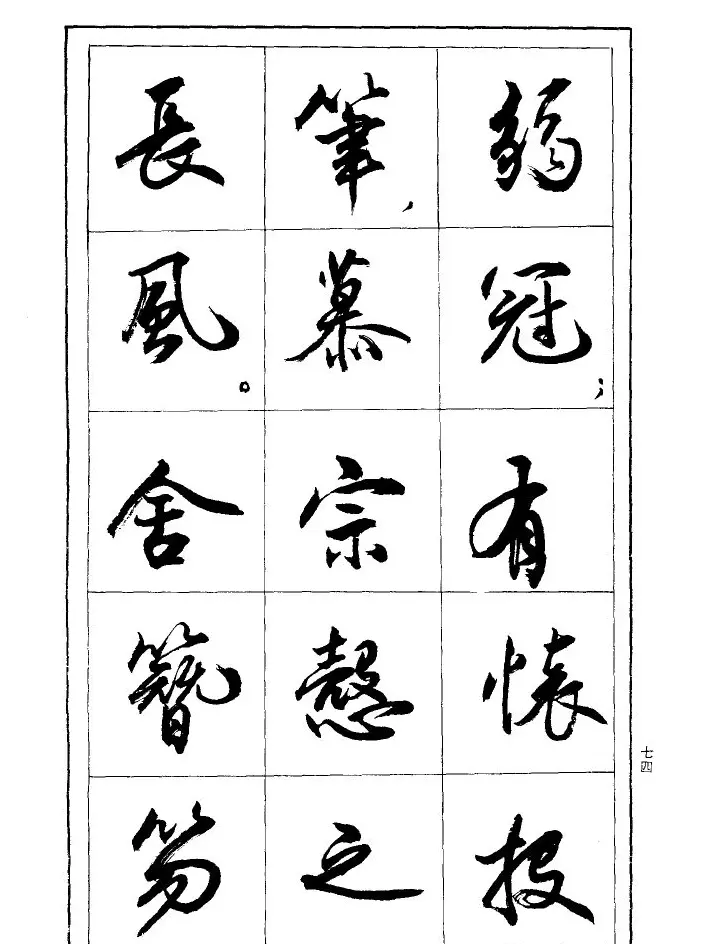 弱冠；有懷投
筆，慕宗愨之
長風。舍簪笏
七四